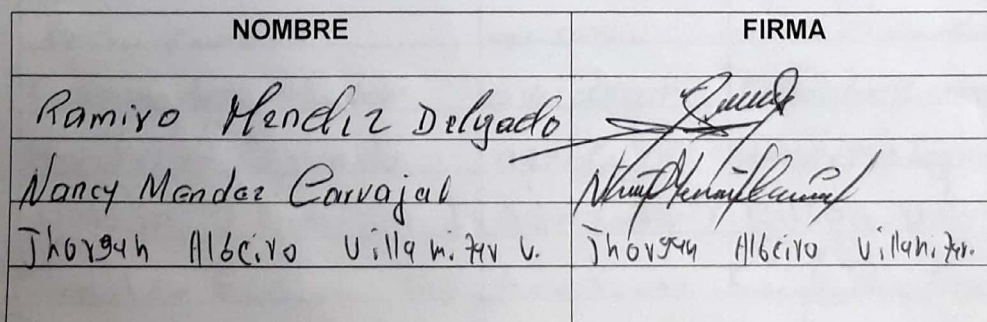 NOMBRE FIRMA
Ramiro Mendiz Delgado
Nancy Mendez Carvajal
Jhorgan Albeiro Villamizar V. Jhorgan Albeiro Villamizar.